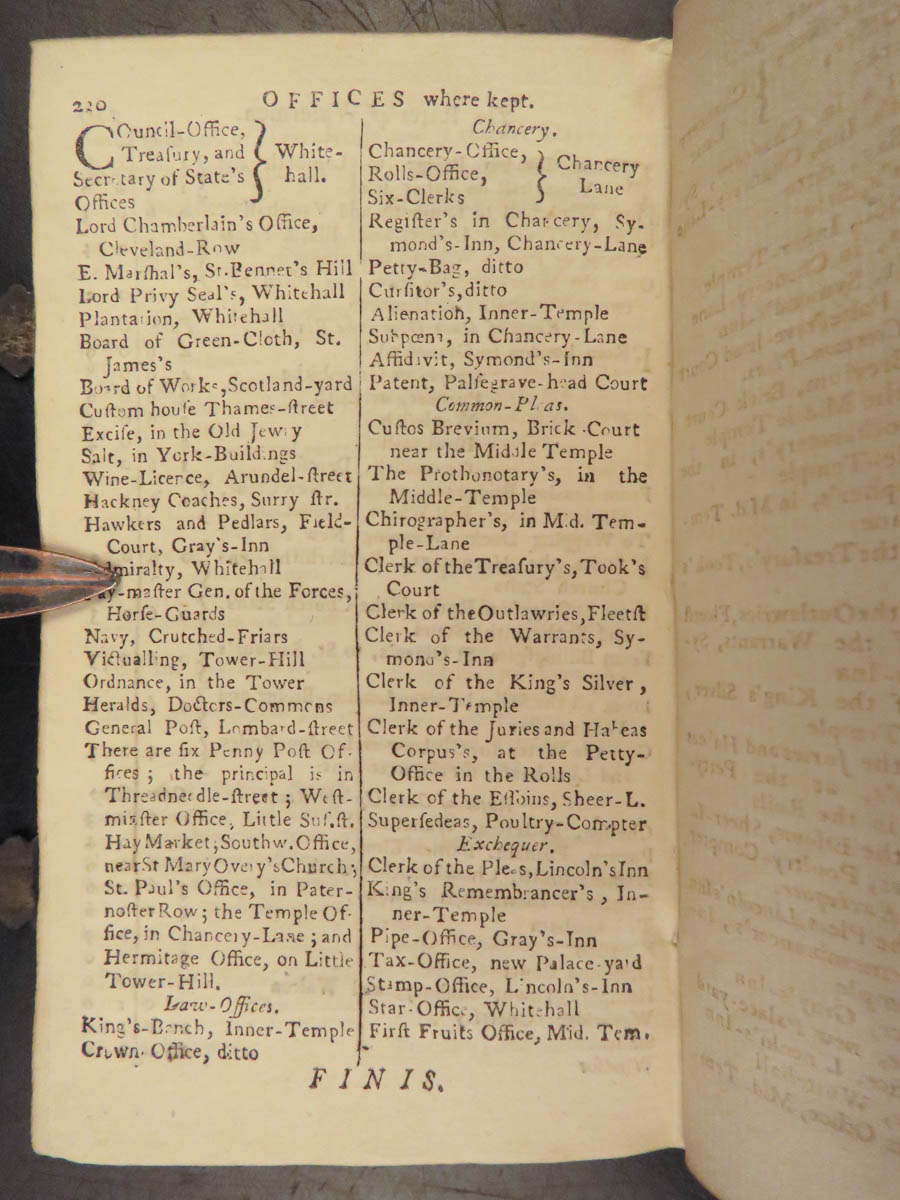 220
OFFICES where kept.
COuncil-Office,
Treaſury, and
Secretary of State's
Offices
} White-
hall.
Lord Chamberlain's Office,
Cleveland-Row
E. Marſhal's, St. Bennet's Hill
Lord Privy Seal's, Whitehall
Plantation, Whitehall
Board of Green-Cloth, St.
James's
Board of Works, Scotland-yard
Cuſtom houſe Thames-ſtreet
Exciſe, in the Old Jewry
Salt, in York-Buildings
Wine-Licence, Arundel-ſtreet
Hackney Coaches, Surry ſtr.
Hawkers and Pedlars, Field-
Court, Gray's-Inn
Admiralty, Whitehall
Pay-maſter Gen. of the Forces,
Horſe-Guards
Navy, Crutched-Friars
Victualling, Tower-Hill
Ordnance, in the Tower
Heralds, Doctors-Commons
General Poſt, Lombard-ſtreet
There are ſix Penny Poſt Of-
fices; the principal is in
Threadneedle-ſtreet; Weſt-
minſter Office, Little Suf. ſt.
Hay Market; Southw. Office,
near St Mary Overy's Church;
St. Paul's Office, in Pater-
noſter Row; the Temple Of-
fice, in Chancery-Lane; and
Hermitage Office, on Little
Tower-Hill.
Law-Offices.
King's-Bench, Inner-Temple
Crown Office, ditto
Chancery.
Chancery-Office,
Rolls-Office,
Six-Clerks
} Chancery
Lane
Regiſter's in Chancery, Sy-
mond's-Inn, Chancery-Lane
Petty-Bag, ditto
Curſitor's, ditto
Alienation, Inner-Temple
Subpœna, in Chancery-Lane
Affidavit, Symond's-Inn
Patent, Palſegrave-head Court
Common-Pleas.
Cuſtos Brevium, Brick-Court
near the Middle Temple
The Prothonotary's, in the
Middle-Temple
Chirographer's, in Mid. Tem-
ple-Lane
Clerk of the Treaſury's, Took's
Court
Clerk of the Outlawries, Fleetſt
Clerk of the Warrants, Sy-
mond's-Inn
Clerk of the King's Silver,
Inner-Temple
Clerk of the Juries and Habeas
Corpus's, at the Petty-
Office in the Rolls
Clerk of the Eſſoins, Sheer-L.
Superſedeas, Poultry-Compter
Exchequer.
Clerk of the Pleas, Lincoln's Inn
King's Remembrancer's, In-
ner-Temple
Pipe-Office, Gray's-Inn
Tax-Office, new Palace-yard
Stamp-Office, Lincoln's-Inn
Star-Office, Whitehall
Firſt Fruits Office, Mid. Tem.
FINIS.